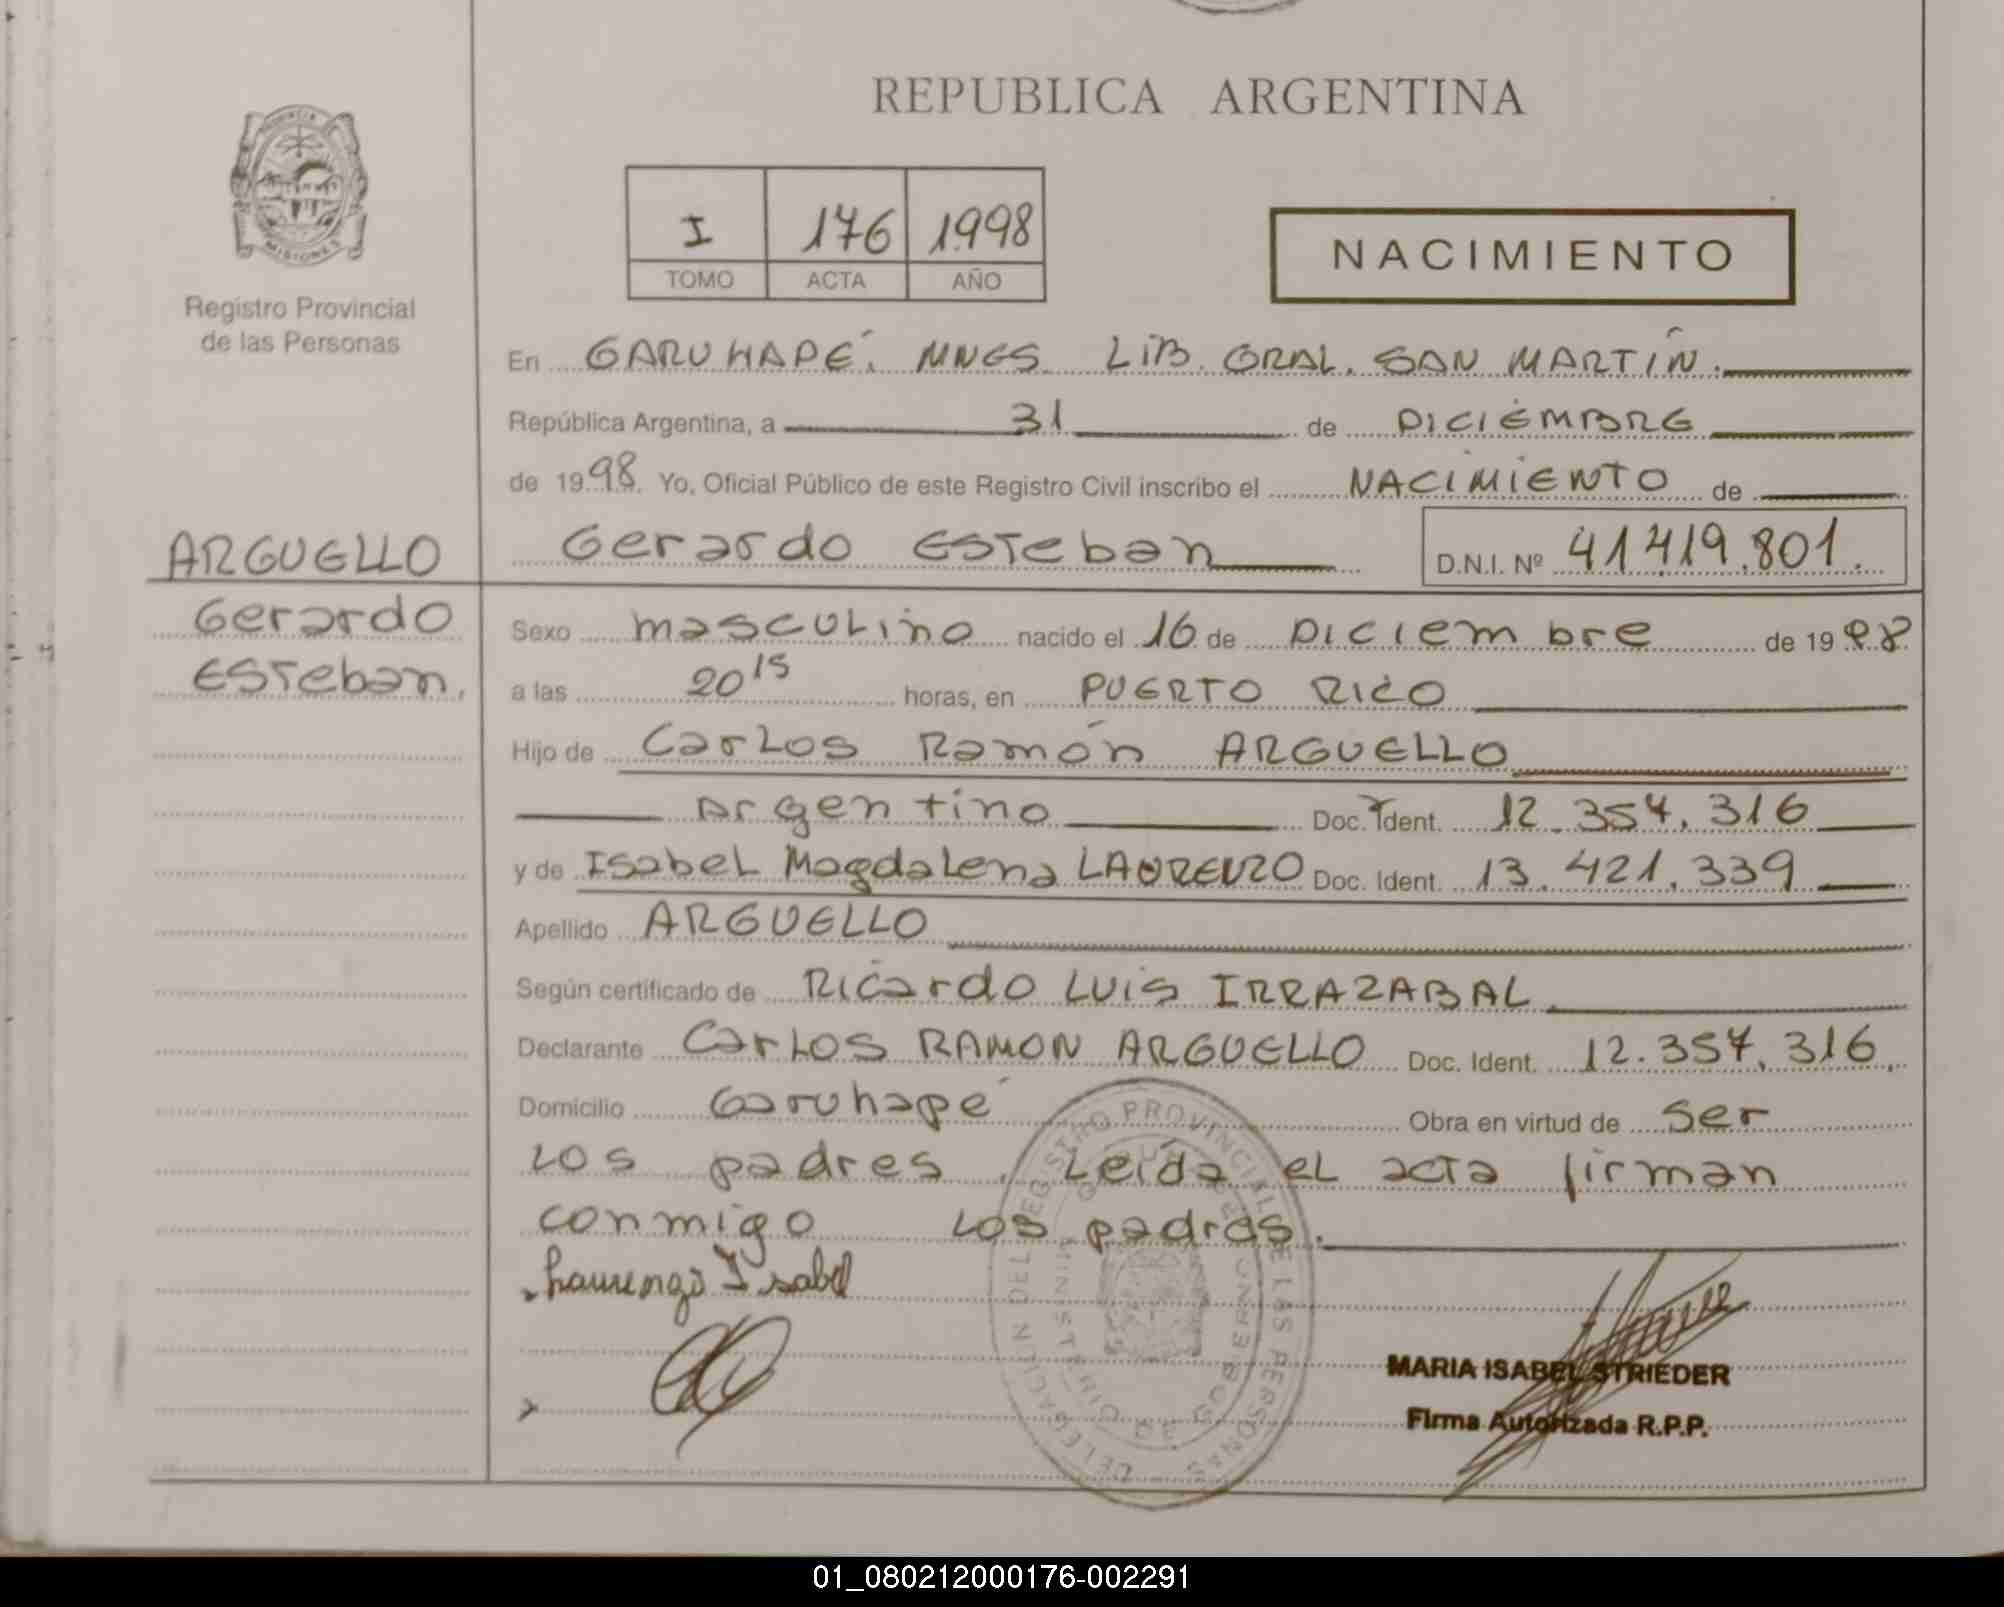 REPUBLICA ARGENTINA
MISIONES
Registro Provincial
de las Personas
I 176 1998
TOMO ACTA AÑO
NACIMIENTO
En GARUHAPÉ. MNES. LIB. GRAL. SAN MARTÍN.
República Argentina, a 31 de DICIEMBRE
de 1998. Yo, Oficial Público de este Registro Civil inscribo el NACIMIENTO de
Gerardo Esteban D.N.I. Nº 41.419.801.
ARGUELLO
Gerardo
Esteban.
Sexo masculino nacido el 16 de Diciembre de 1998
a las 20 15 horas, en PUERTO RICO
Hijo de Carlos Ramón ARGUELLO
Argentino Doc. Ident. 12.357.316
y de Isabel Magdalena LAURENZO Doc. Ident. 13.421.339
Apellido ARGUELLO
Según certificado de Ricardo Luis IRRAZABAL
Declarante Carlos RAMON ARGUELLO Doc. Ident. 12.357.316.
Domicilio Garuhapé Obra en virtud de ser
los padres. Leída el acta firman
conmigo los padres.
Laurenzo Isabel
DELEGACION DEL REGISTRO PROVINCIAL DE LAS PERSONAS
MINISTERIO DE GOBIERNO
MARIA ISABEL STRIEDER
Firma Autorizada R.P.P.
01_080212000176-002291